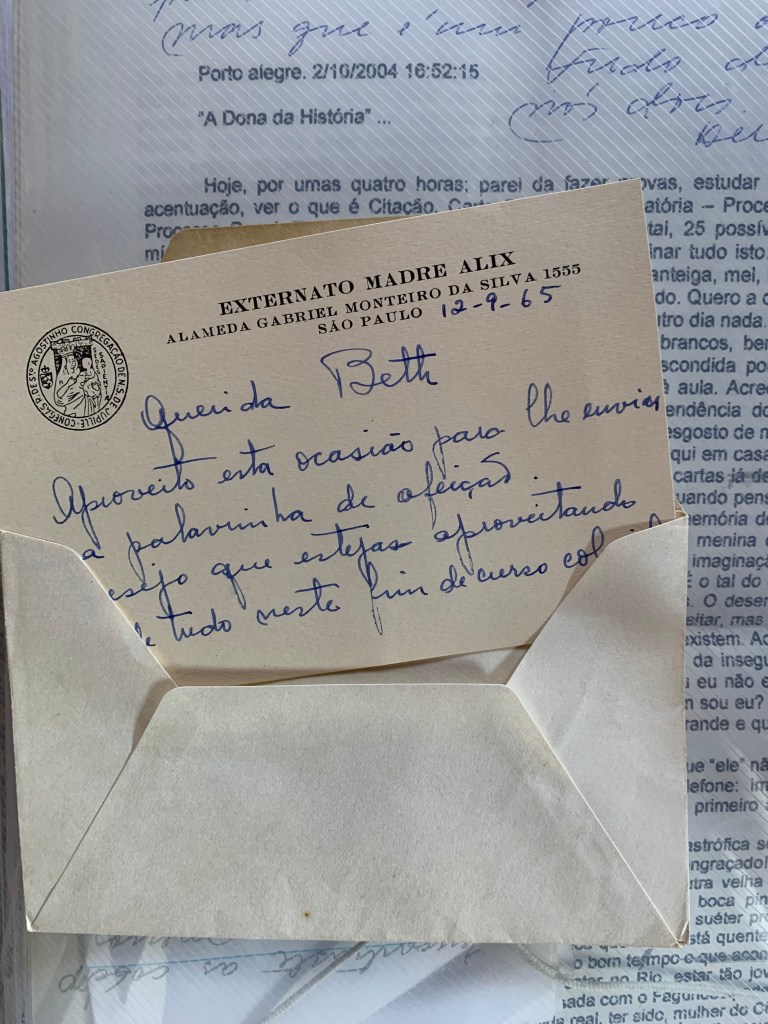 mas que é um pouco
tudo
nós dois.
Porto alegre. 2/10/2004 16:52:15
"A Dona da História" ...
Hoje, por umas quatro horas; parei da fazer provas, estudar
acentuação, ver o que é Citação, atória – Proce
tal, 25 possív
inar tudo isto.
anteiga, mel,
do. Quero a c
utro dia nada.
brancos, ber
scondida po
à aula. Acre
endência do
esgosto de m
qui em casa
cartas já de
uando pens
emória de
menina
imaginaçã
É o tal do
s. O deser
eitar, mas
existem. Ac
da insegu
u eu não e
n sou eu?
rande e qu
ue "ele" nã
lefone: im
primeiro a
astrófica s
engraçado!
utra velha
boca pin
suéter pr
stá quente
o bom tempo e que acon
no Rio, estar tão jov
sada com o
real, ter sido, mulher do Ci
EXTERNATO MADRE ALIX
ALAMEDA GABRIEL MONTEIRO DA SILVA 1555
SÃO PAULO 12-9-65
CONÊGAS R. DE STO AGOSTINHO CONGREGAÇÃO DE N. S. DE JUPILLE
SEDES SAPIENTIÆ
Querida Beth
Aproveito esta ocasião para lhe enviar
a palavrinha de afeição.
esejo que estejas aproveitando
de tudo neste fim de curso